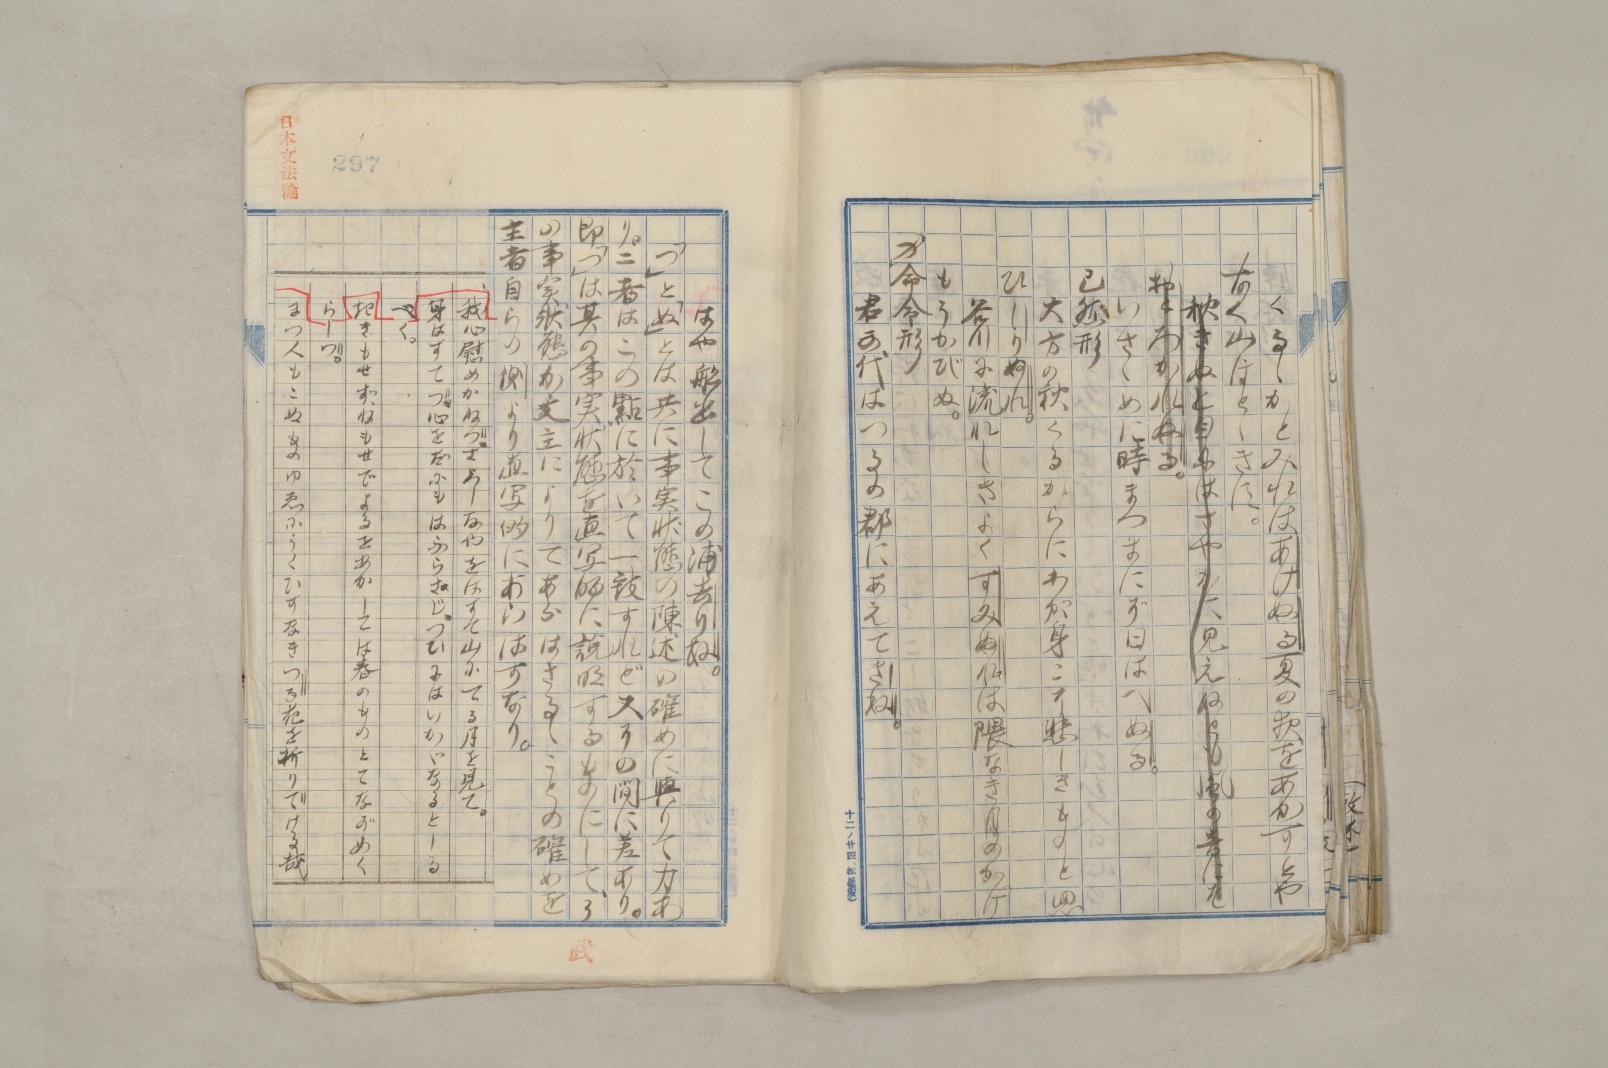 くるゝかとみれはあけぬる夏の夜をあかすとや
なく山ほとゝきす。
秋きぬと目にはさやかに見えねとも風の音にそ
おとろかれぬる。
いさゝめに時まつまにぞ日はへぬる。
已然形
大方の秋くるからにわが身こそ悲しきものと思
ひしりぬれ。
谷川の流れしきよくすみぬれは隈なき月のかけ
もうかびぬ。
カ命令形
君か代はつるの郡にあえてきね。
十二ノ廿四
日本文法論
297
はや船出してこの浦去りね。
「つ」と「ぬ」とは共に事実状態の陳述の確めに与りて力あ
り。二者はこの點に於いて一致すれど又その間に差あり。
即「つ」は其の事実状態を直写的に説明するものにして、ぬ
の事実状態が文主によりてあらはさるゝことの確めを
主者自らの側より直写的にあらはすなり。
我心慰めかねつさらしなやをはすて山にてる月を見て。
身はすてつ心をだにもはふらさじつひにはいかゞなるとしる
べく。
起きもせずねもせでよるをあかしては春のものとてながめく
らしつ。
まつ人もこぬものゆゑにうくひすのなきつる花を折りてける哉
武